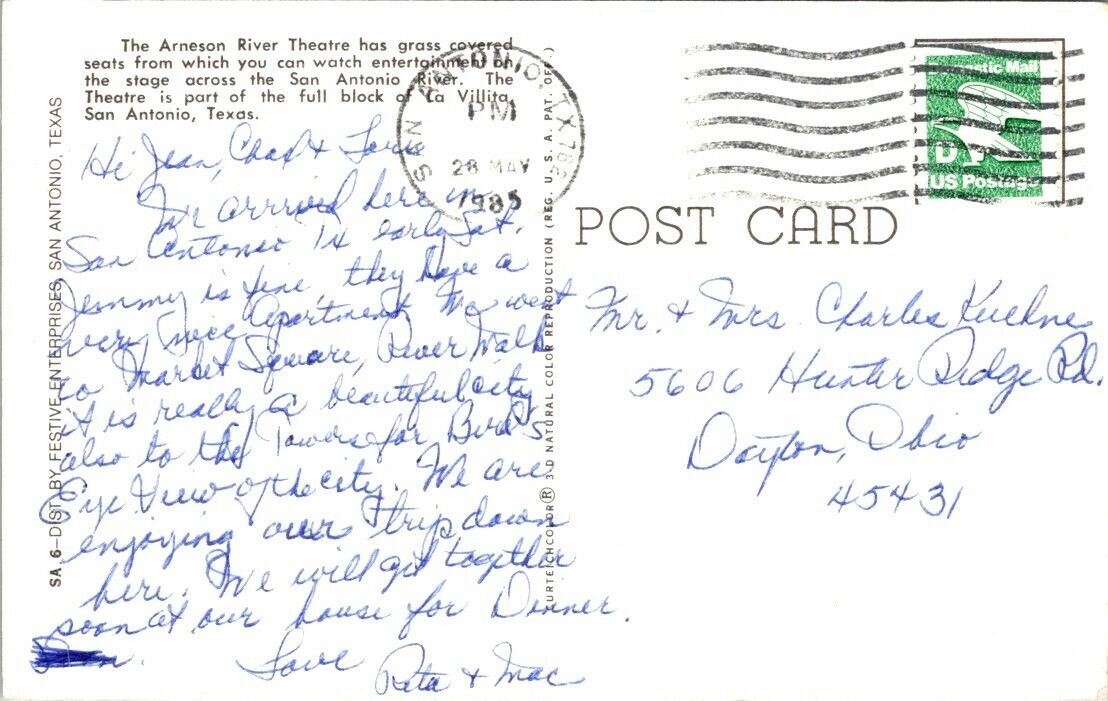 The Arneson River Theatre has grass covered
seats from which you can watch entertainment on
the stage across the San Antonio River. The
Theatre is part of the full block of La Villita,
San Antonio, Texas.
SAN ANTONIO, TX
PM
28 MAY
1985
Domestic Mail
D
US Postage
POST CARD
SA 6—DIST. BY FESTIVE ENTERPRISES, SAN ANTONIO, TEXAS
CURTEICHCOLOR® 3-D NATURAL COLOR REPRODUCTION (REG. U. S. A. PAT. OFF.)
Hi Jean, &
We arrived here in
San Antonio TX early Sat.
Jemmy is fine, they have a
very nice Apartment. We went
to Market Square, River Walk
it is really a beautiful city
also to the Towers for Bird's
Eye View of the city. We are
enjoying our trip down
here. We will get together
soon at our house for Dinner.
Love
Rita & Mac
Mr. & Mrs Charles Kuehne
5606 Hunter Ridge Rd.
Dayton, Ohio
45431